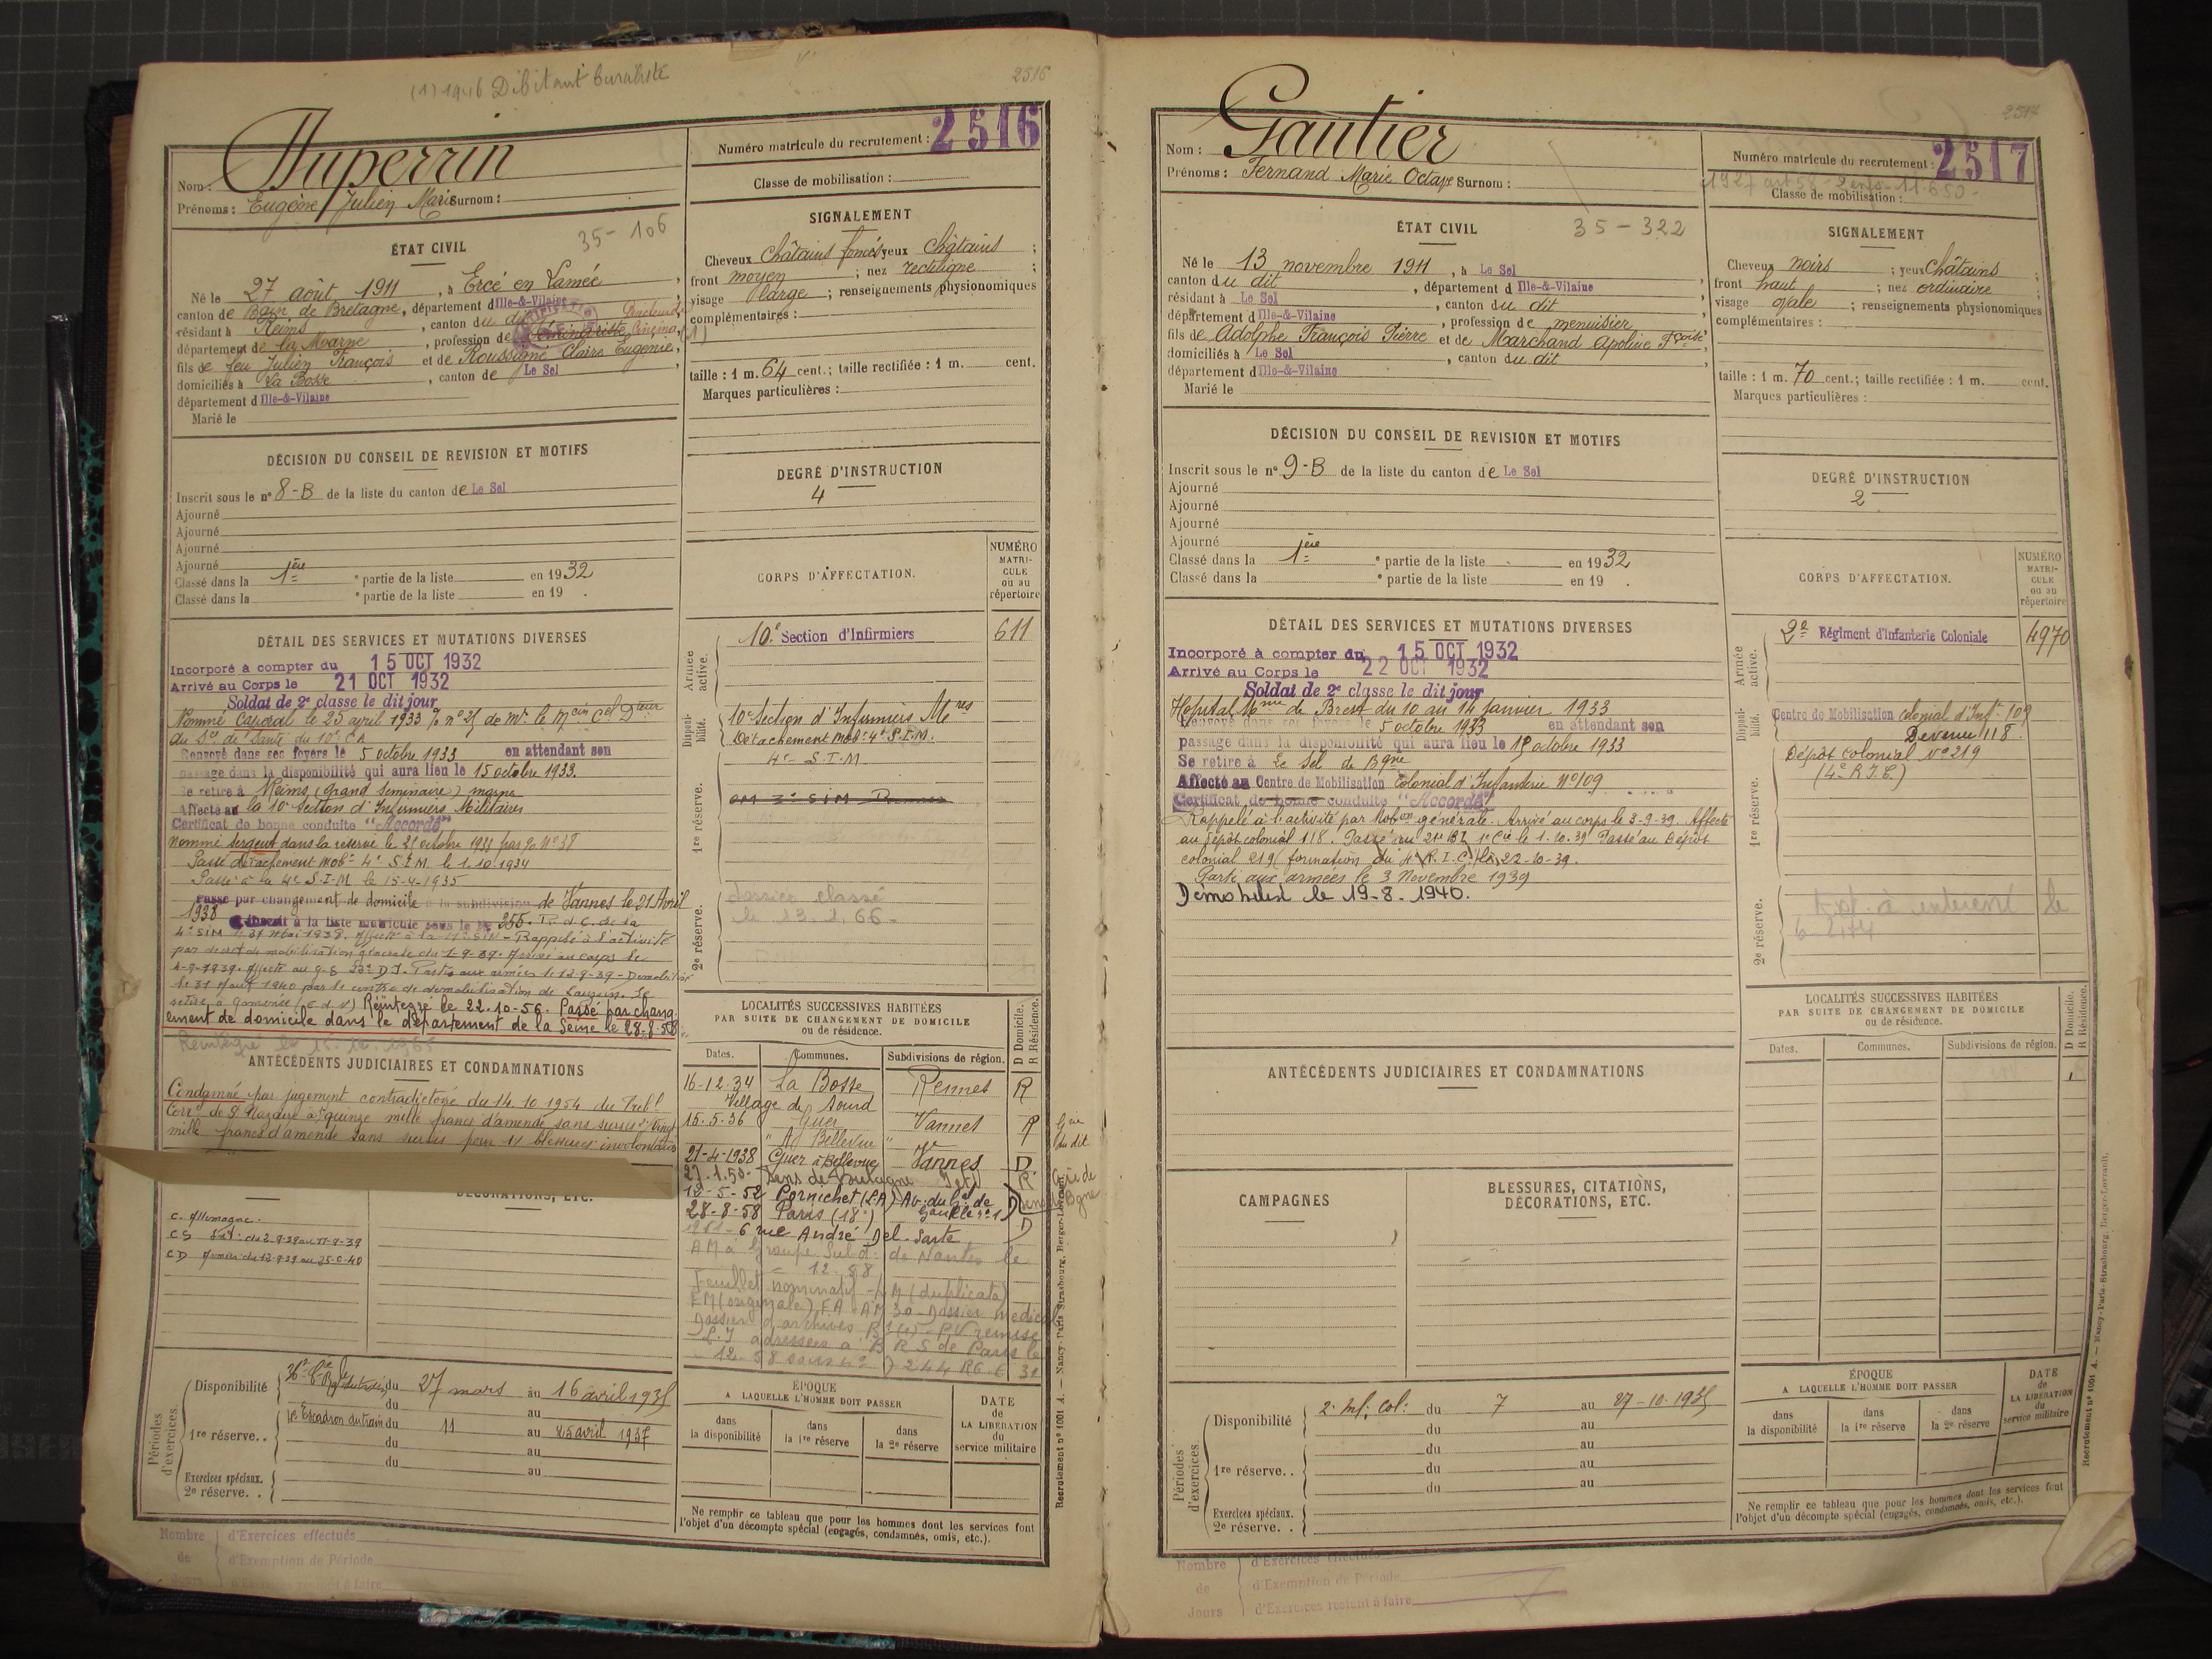 (1) 1946 Débitant buraliste
2516
Duperrin
Nom :
Prénoms : Eugène Julien Marie Surnom :
Numéro matricule du recrutement : 2516
Classe de mobilisation :
ÉTAT CIVIL
35-106
Né le 27 août 1911, à Ercé en Lamée,
canton de Bain de Bretagne, département d'Ille-&-Vilaine
résidant à Reims, canton du dit
département de la Marne, profession de Séminariste (1)
fils de feu Julien François et de Roussigné Claire Eugénie,
domiciliés à La Bosse, canton de Le Sel,
département d'Ille-&-Vilaine
Marié le
SIGNALEMENT
Cheveux Châtains foncés yeux châtains ;
front moyen ; nez rectiligne ;
visage large ; renseignements physionomiques
complémentaires :
taille : 1 m. 64 cent.; taille rectifiée : 1 m. cent.
Marques particulières :
DÉCISION DU CONSEIL DE REVISION ET MOTIFS
Inscrit sous le n° 8-B de la liste du canton de Le Sel
Ajourné
Ajourné
Ajourné
Ajourné
Classé dans la 1ère partie de la liste en 1932
Classé dans la e partie de la liste en 19 .
DEGRÉ D'INSTRUCTION
4
CORPS D'AFFECTATION.
NUMÉRO MATRICULE ou au répertoire
Armée active.
10e Section d'Infirmiers 611
Disponibilité.
10e Section d'Infirmiers Mres
Détachement Mob: 4e S.I.M.
1re réserve.
4e S.I.M
2e réserve.
Dossier classé
le 13.1.66-
DÉTAIL DES SERVICES ET MUTATIONS DIVERSES
Incorporé à compter du 15 OCT 1932
Arrivé au Corps le 21 OCT 1932
Soldat de 2e classe le dit jour
Nommé Caporal le 25 avril 1933 % n° 25 de Mr. le Mcin Cel Dteur
du Sce de Santé du 10e CA
Renvoyé dans ses foyers le 5 octobre 1933 en attendant son
passage dans la disponibilité qui aura lieu le 15 octobre 1933.
Se retire à Reims (grand Séminaire) marne
Affecté au la 10e Section d'Infirmiers Militaires
Certificat de bonne conduite "Accordé"
Nommé Sergent dans la réserve le 21 octobre 1933 par % N° 38
Passé détachement Mob: 4e S.I.M. le 1.10.1934
Passé à la 4e S.I.M le 15-4-1935
Passé par changement de domicile à la subdivision de Vannes le 21 Avril
1938 Inscrit à la liste matricule sous le n° 255 P. d C. de la
4e SIM le 31 Mai 1938. Affecté à la 11e SIM - Rappelé à l'activité
par décret de mobilisation générale du 1-9-39. Arrivé au corps le
4-9-1939. Parti aux armées le 12-9-39 - Démobilisé
le 31 Aout 1940 par le centre de démobilisation de Lauzun. Se
retire à Réintégré le 22.10-56. Passé par chang
ement de domicile dans le département de la Seine le 28-8-58
ANTÉCÉDENTS JUDICIAIRES ET CONDAMNATIONS
Condamné par jugement contradictoire du 14.10.1954 du Tribl
Corrl de St Nazaire à quinze mille francs d'amende sans sursis et vingt
mille francs d'amende sans sursis pour blessures involontaires
DÉCORATIONS, ETC.
C. Allemagne.
LOCALITÉS SUCCESSIVES HABITÉES
PAR SUITE DE CHANGEMENT DE DOMICILE
ou de résidence.
D Domicile. R Résidence.
Dates. Communes. Subdivisions de région.
16-12-34 La Bosse Rennes R
Village de Sourd
15.5.36 Guer Vannes R
" Ad Bellevue "
21-4-1938 Guer à Bellevue Vannes D
27.1.50- Sens de Bretagne R
12-5-52 Pornichet (L.A) Av: du Gal de Gaulle n° 1 D
28-8-58 Paris (18e) D
1961- 6 rue André Del Sarte
Feuillet nominatif (duplicata)
Périodes d'exercices.
Disponibilité du 27 mars au 16 avril 1935
du au
1re réserve. . Escadron du train du 11 au 25 avril 1937
du au
du au
Exercices spéciaux.
2e réserve. .
ÉPOQUE
A LAQUELLE L'HOMME DOIT PASSER
dans la disponibilité
dans la 1re réserve
dans la 2e réserve
DATE de LA LIBÉRATION du service militaire
Ne remplir ce tableau que pour les hommes dont les services font
l'objet d'un décompte spécial (engagés, condamnés, omis, etc.).
Recrutement n° 1001 A. — Nancy-Paris-Strasbourg, Berger-Levrault.
Nombre de Jours
d'Exercices effectués
d'Exemption de Période
d'Exercices restant à faire
2517
Nom : Gautier
Prénoms : Fernand Marie Octave Surnom :
Numéro matricule du recrutement : 2517
Classe de mobilisation :
ÉTAT CIVIL
35-322
Né le 13 novembre 1911, à Le Sel
canton du dit, département d'Ille-&-Vilaine
résidant à Le Sel, canton du dit
département d'Ille-&-Vilaine, profession de menuisier
fils de Adolphe François Pierre et de Marchand Apoline Fçoise
domiciliés à Le Sel, canton du dit
département d'Ille-&-Vilaine
Marié le
SIGNALEMENT
Cheveux noirs ; yeux châtains ;
front haut ; nez ordinaire ;
visage ovale ; renseignements physionomiques
complémentaires :
taille : 1 m. 70 cent.; taille rectifiée : 1 m. cent.
Marques particulières :
DÉCISION DU CONSEIL DE REVISION ET MOTIFS
Inscrit sous le n° 9-B de la liste du canton de Le Sel
Ajourné
Ajourné
Ajourné
Ajourné
Classé dans la 1ère partie de la liste en 1932
Classé dans la e partie de la liste en 19 .
DEGRÉ D'INSTRUCTION
2
CORPS D'AFFECTATION.
NUMÉRO MATRICULE ou au répertoire
Armée active.
2e Régiment d'Infanterie Coloniale 4970
Disponibilité.
Centre de Mobilisation colonial d'Inf. 109
Devenu 118.
1re réserve.
Dépôt colonial N° 219
(4e R.I.C.)
2e réserve.
DÉTAIL DES SERVICES ET MUTATIONS DIVERSES
Incorporé à compter du 15 OCT 1932
Arrivé au Corps le 22 OCT 1932
Soldat de 2e classe le dit jour
Hôpital Mme de Brest du 10 au 14 janvier 1933
Renvoyé dans ses foyers le 5 octobre 1933 en attendant son
passage dans la disponibilité qui aura lieu le 15 octobre 1933
Se retire à Le Sel de Bgne
Affecté au Centre de Mobilisation Colonial d'Infanterie N° 109
Certificat de bonne conduite "Accordé"
Rappelé à l'activité par Mobon générale. Arrivé au corps le 3-9-39. Affecté
au dépôt colonial 118. Passé au 1e Cie le 1-10-39 Passé au Dépôt
colonial 219 formation du 4e R.I.C. le 22-10-39.
Parti aux armées le 3 Novembre 1939
Démobilisé le 19-8-1940.
ANTÉCÉDENTS JUDICIAIRES ET CONDAMNATIONS
CAMPAGNES
BLESSURES, CITATIONS, DÉCORATIONS, ETC.
LOCALITÉS SUCCESSIVES HABITÉES
PAR SUITE DE CHANGEMENT DE DOMICILE
ou de résidence.
D Domicile. R Résidence.
Dates. Communes. Subdivisions de région.
Périodes d'exercices.
Disponibilité 2e Inf. Col: du 7 au 27-10-1935
du au
du au
1re réserve. . du au
du au
Exercices spéciaux.
2e réserve. .
ÉPOQUE
A LAQUELLE L'HOMME DOIT PASSER
dans la disponibilité
dans la 1re réserve
dans la 2e réserve
DATE de LA LIBÉRATION du service militaire
Ne remplir ce tableau que pour les hommes dont les services font
l'objet d'un décompte spécial (engagés, condamnés, omis, etc.).
Recrutement n° 1001 A. — Nancy-Paris-Strasbourg, Berger-Levrault.
Nombre de Jours
d'Exercices effectués
d'Exemption de Période
d'Exercices restant à faire